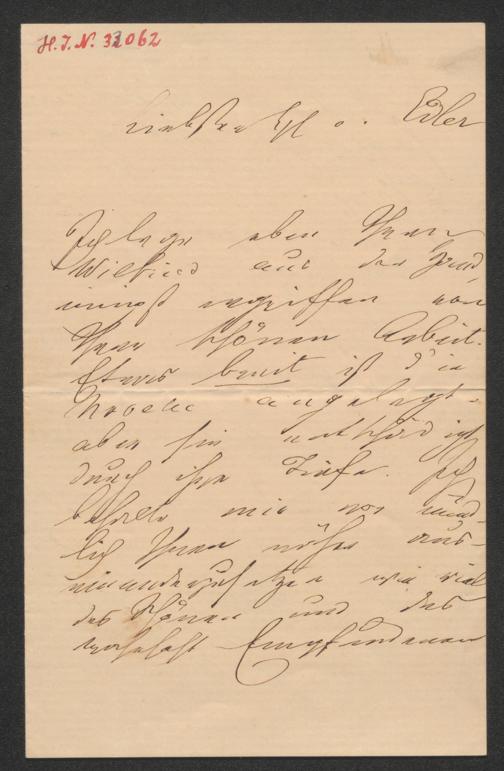 H.I.N. 32062
Liebster Hl v. Edler
Ich lege eben Ihren
"Wieland aus der Hand
innigst ergriffen von
Ihrer schönen Arbeit.
Etwas breit ist die
Novelle angelegt -
aber sie entschädigt
durch ihre Tiefe. Ich
behalte mir vor münd-
lich Ihnen näher aus-
einanderzusetzen wie viel
des Schönen und des
wahrhaft Empfundenen